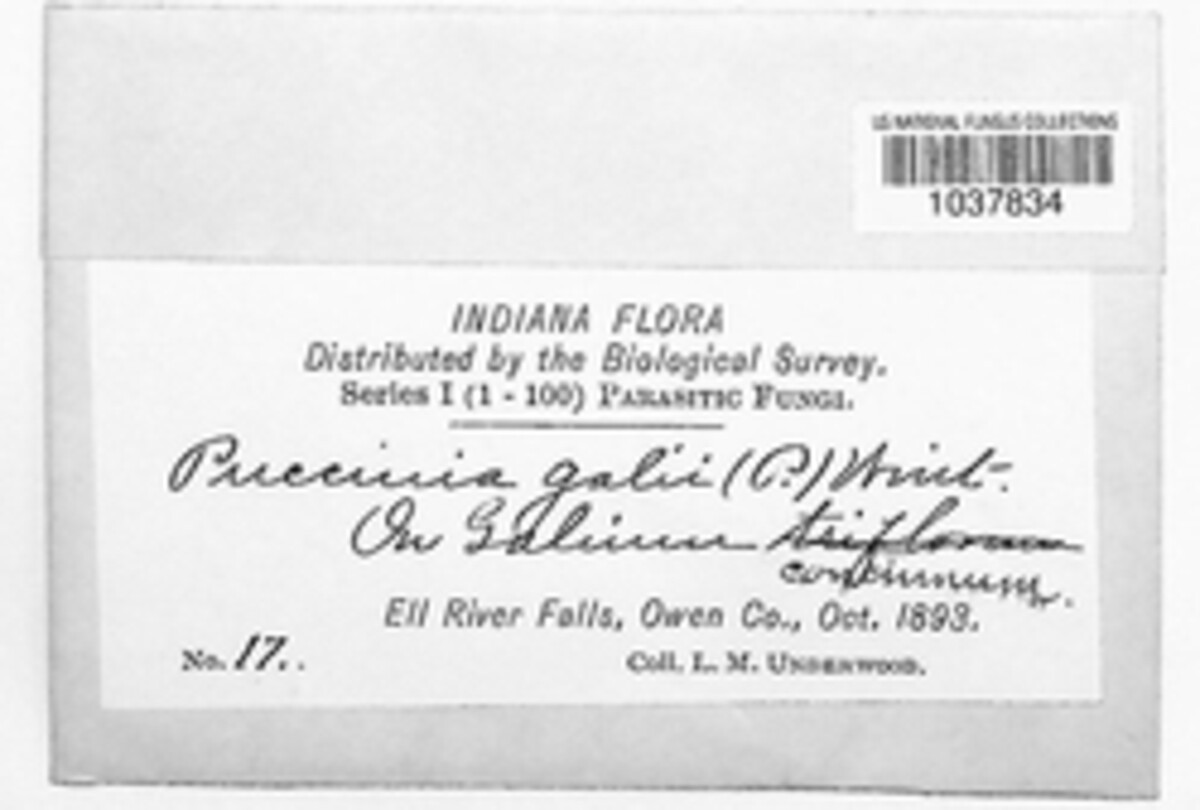 US NATIONAL FUNGUS COLLECTIONS
1037834
INDIANA FLORA
Distributed by the Biological Survey.
Series I (1 - 100) PARASITIC FUNGI.
Puccinia galii (P.) Wint.
On Galium triflorum
concinnum.
Ell River Falls, Owen Co., Oct. 1893.
No. 17. .
Coll. L. M. UNDERWOOD.